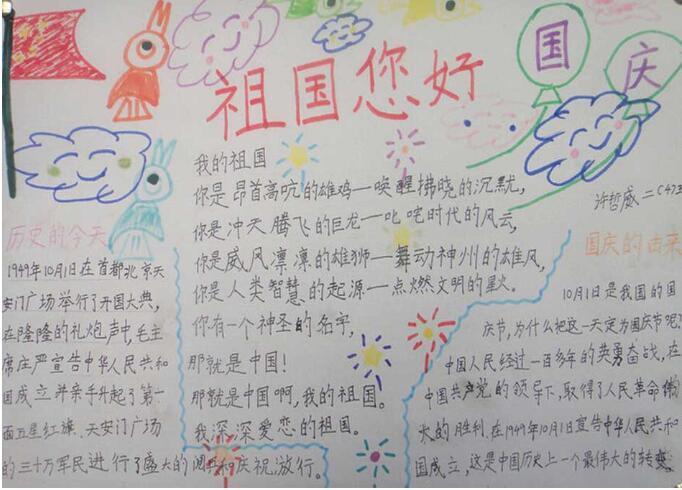 祖国您好
国庆
许哲威 二(4)班
我的祖国
你是昂首高吭的雄鸡—唤醒拂晓的沉默,
你是冲天腾飞的巨龙—叱咤时代的风云,
你是威风凛凛的雄狮—舞动神州的雄风,
你是人类智慧的起源—点燃文明的星火。
你有一个神圣的名字,
那就是中国!
那就是中国啊,我的祖国。
我深深爱恋的祖国。
历史的今天
1949年10月1日在首都北京天
安门广场举行了开国大典,
在隆隆的礼炮声中,毛主
席庄严宣告中华人民共和
国成立并亲手升起了第一
面五星红旗、天安门广场
的三十万军民进行了盛大的阅兵和庆祝游行。
国庆的由来
10月1日是我国的国
庆节,为什么把这一天定为国庆节呢?
中国人民经过一百多年的英勇奋战,在
中国共产党的领导下,取得了人民革命的
大的胜利.在1949年10月1日宣告中华人民共和
国成立,这是中国历史上一个最伟大的转变